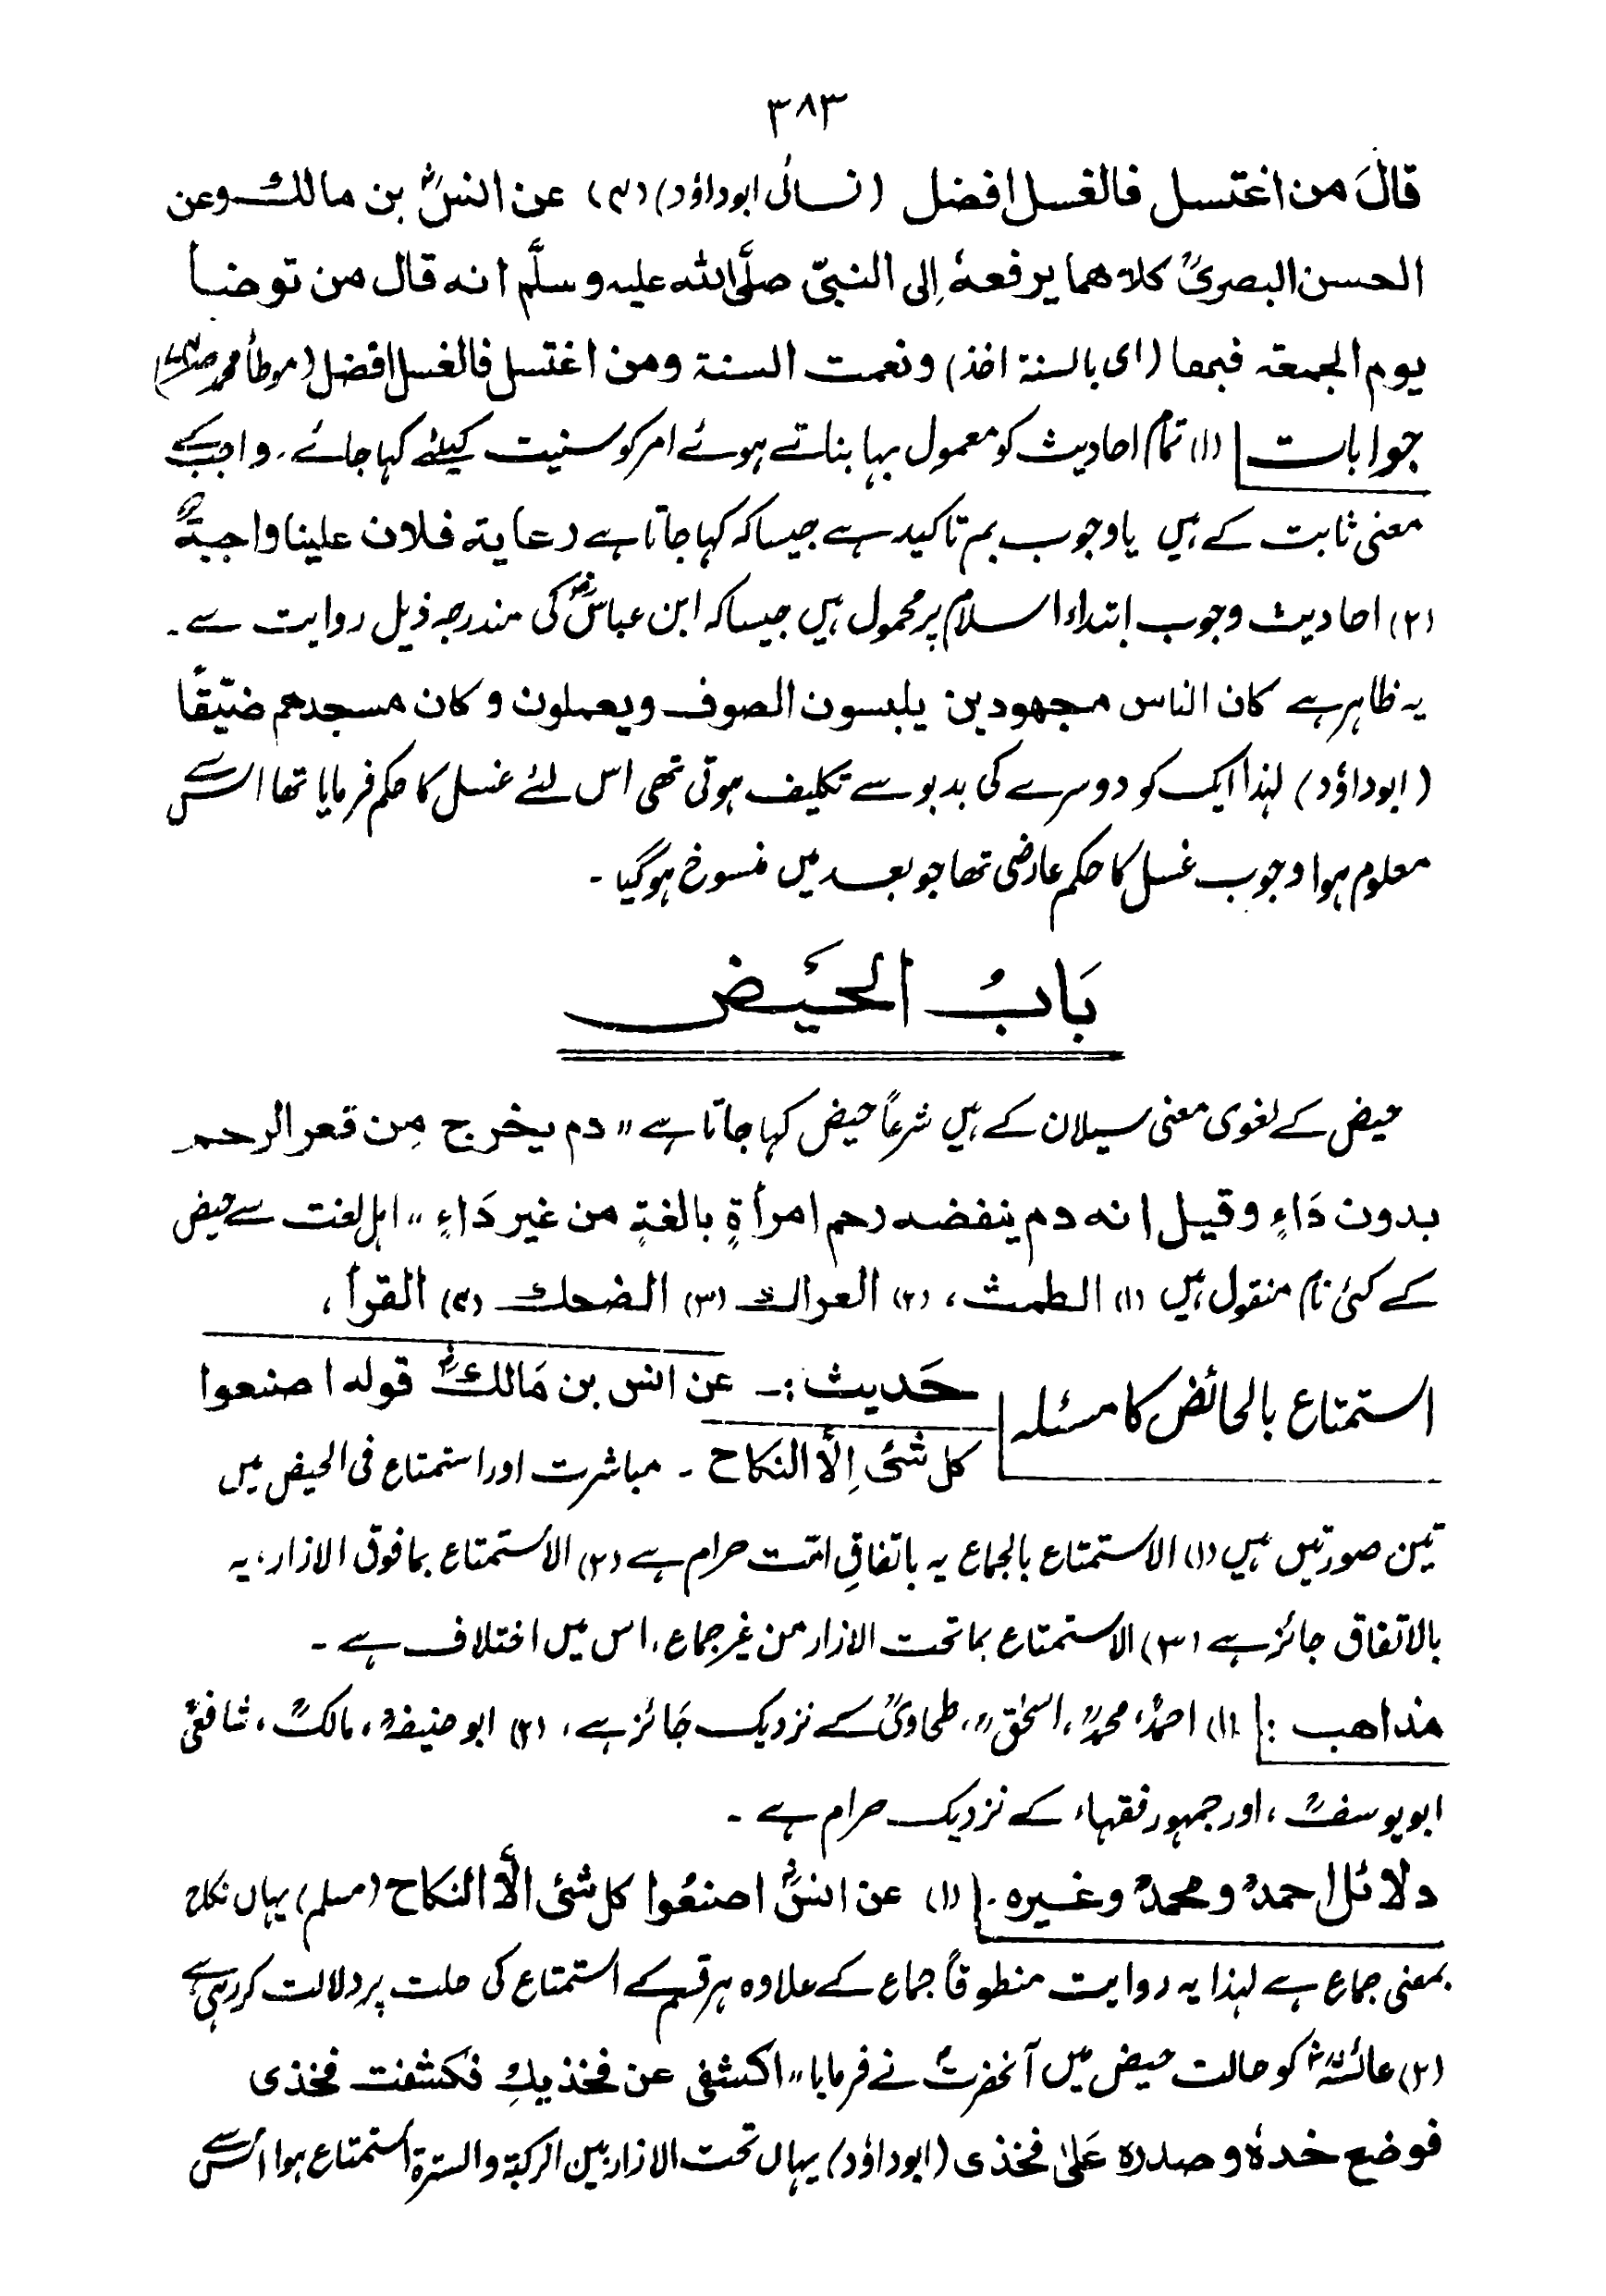 ۳۸۳
قالَ من اغتسل فالغسل افضل (نسائی ابوداؤد) (۴) عن انسؓ بن مالك وعن
الحسن البصریؒ کلاهما یرفعهٗ اِلی النبیّ صلَّی اللہ علیه وسلَّم انه قال من توضأ
یوم الجمعة فبها (ای بالسنة اخذ) ونعمت السنة ومن اغتسل فالغسل افضل (موطأ محمد
جوابات (۱) تمام احادیث کو معمول بہا بناتے ہوئے امر کو سنیت کیلئے کہا جائے، واجب کے
معنی ثابت کے ہیں یا وجوب بم تاکید ہے جیسا کہ کہا جاتا ہے رعایة فلان علینا واجبةٌ
(۲) احادیث وجوب ابتداء اسلام پر محمول ہیں جیسا کہ ابن عباسؓ کی مندرجہ ذیل روایت سے۔
یہ ظاہر ہے کان الناس مجهودین یلبسون الصوف ویعملون وکان مسجدهم ضیّقًا
(ابوداؤد) لہٰذا ایک کو دوسرے کی بدبو سے تکلیف ہوتی تھی اس لئے غسل کا حکم فرمایا تھا اس سے
معلوم ہوا وجوب غسل کا حکم عارضی تھا جو بعد میں منسوخ ہوگیا۔
بَابُ الحَیَض
حیض کے لغوی معنی سیلان کے ہیں شرعاً حیض کہا جاتا ہے " دم یخرج مِن قعر الرحم
بدون دَاءٍ وقیل انه دم ینفضه رحم امرأةٍ بالغةٍ من غیر دَاءٍ " اہل لغت سے حیض
کے کئی نام منقول ہیں (۱) الطمث، (۲) العراك (۳) الضحك (۴) القرأ،
استمتاع بالحائض کا مسئلہ حَدیث :۔ عن انس بن مَالكؓ قوله اصنعوا
کل شئی اِلَّا النکاح ۔ مباشرت اور استمتاع فی الحیض میں
تین صورتیں ہیں (۱) الاستمتاع بالجماع یہ باتفاقِ امّت حرام ہے (۲) الأستمتاع بما فوق الازار، یہ
بالاتفاق جائز ہے (۳) الاستمتاع بما تحت الازار من غیر جماع، اس میں اختلاف ہے۔
مذاهب : (۱) احمدؒ، محمدؒ، اسحٰقؒ، طحاویؒ کے نزدیک جَائز ہے، (۲) ابوحنیفہؒ، مالکؒ، شافعیؒ
ابویوسفؒ، اور جمہور فقہاء کے نزدیک حرام ہے۔
دلائل احمدؒ ومحمدؒ وغیرہ (۱) عن انسؓ اصنعُوا کل شئی الَّا النکاح (مسلم) یہاں نکاح
بمعنی جماع ہے لہٰذا یہ روایت منطوقاً جماع کے علاوہ ہر قسم کے استمتاع کی حلت پر دلالت کررہی ہے
(۲) عائشہؓ کو حالت حیض میں آنحضرتؐ نے فرمایا " اکشفی عن فخذیكِ فکشفت فخذی
فوضع خدهٗ وصدره عَلیٰ فخذی (ابوداؤد) یہاں تحت الازار بین الرکبة والسترة استمتاع ہوا اس سے